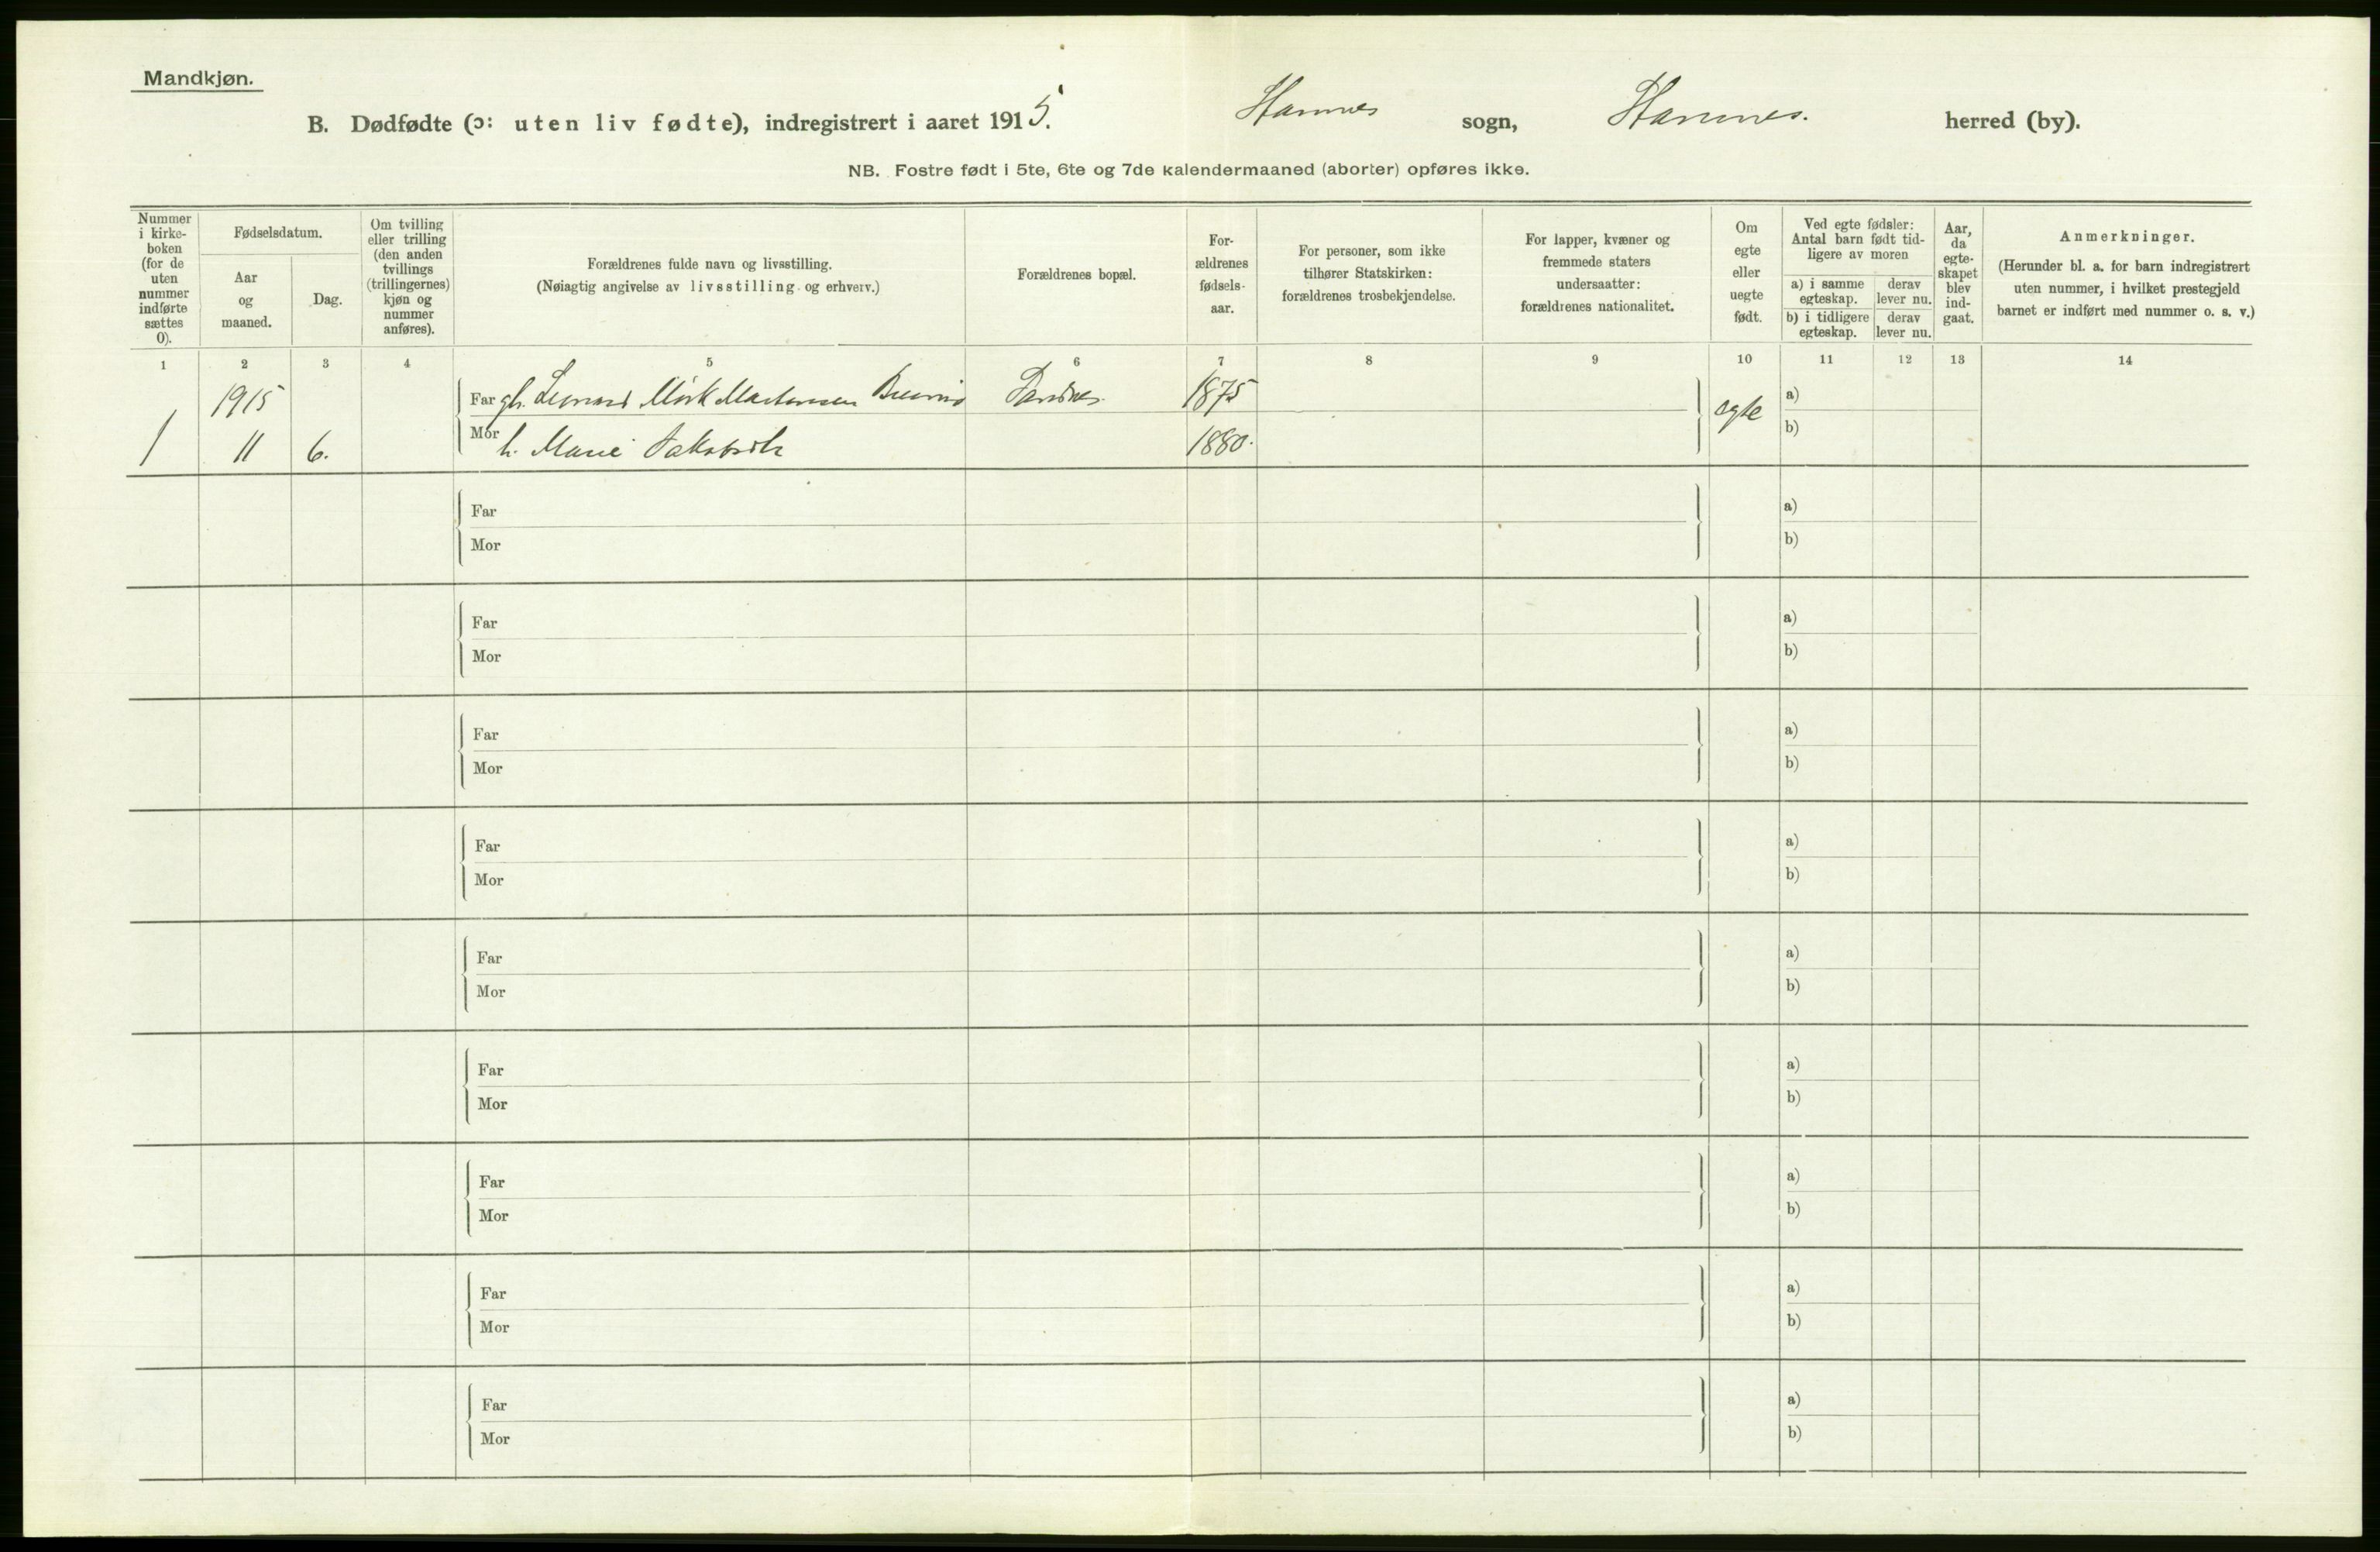 Mandkjøn.
B. Dødfødte (ɔ: uten liv fødte), indregistrert i aaret 1915. Hamnes sogn, Hamnes. herred (by).
NB. Fostre født i 5te, 6te og 7de kalendermaaned (aborter) opføres ikke.
Nummer i kirke-boken (for de uten nummer indførte sættes 0).
Fødselsdatum.
Aar og maaned.
Dag.
Om tvilling eller trilling (den anden tvillings (trillingernes) kjøn og nummer anføres).
Forældrenes fulde navn og livsstilling.
(Nøiagtig angivelse av livsstilling og erhverv.)
Forældrenes bopæl.
For-ældrenes fødsels-aar.
For personer, som ikke tilhører Statskirken: forældrenes trosbekjendelse.
For lapper, kvæner og fremmede staters undersaatter: forældrenes nationalitet.
Om egte eller uegte født.
Ved egte fødsler: Antal barn født tid-ligere av moren
a) i samme egteskap.
derav lever nu.
b) i tidligere egteskap.
derav lever nu.
Aar, da egte-skapet blev ind-gaat.
Anmerkninger.
(Herunder bl. a. for barn indregistrert uten nummer, i hvilket prestegjeld barnet er indført med nummer o. s. v.)
1 2 3 4 5 6 7 8 9 10 11 12 13 14
1915 Far Mørk Sandnes. 1875 egte a)
1 11 6. Mor h. Marie 1880. b)
Far a)
Mor b)
Far a)
Mor b)
Far a)
Mor b)
Far a)
Mor b)
Far a)
Mor b)
Far a)
Mor b)
Far a)
Mor b)
Far a)
Mor b)
Far a)
Mor b)